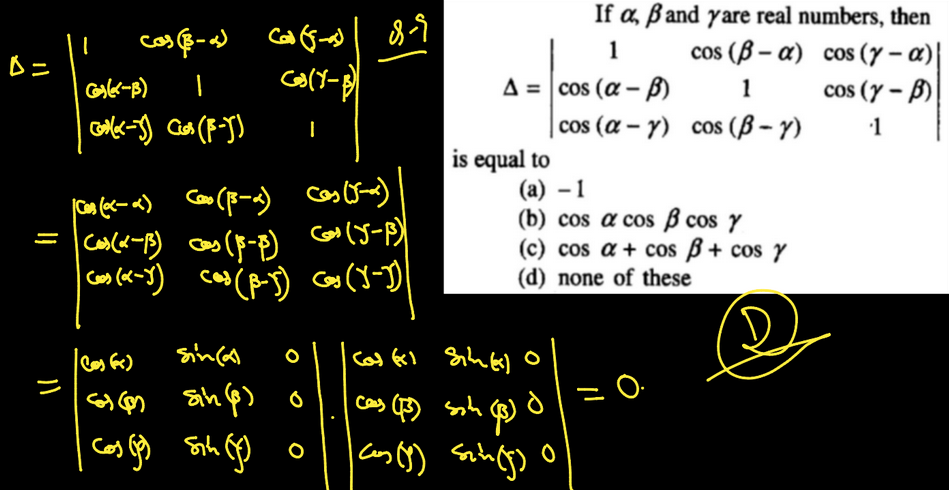 If α, β and γ are real numbers, then
Δ = | 1 cos (β − α) cos (γ − α) |
| cos (α − β) 1 cos (γ − β) |
| cos (α − γ) cos (β − γ) 1 |
is equal to
(a) − 1
(b) cos α cos β cos γ
(c) cos α + cos β + cos γ
(d) none of these
Δ = | 1 cos(β−α) cos(γ−α) |
| cos(α−β) 1 cos(γ−β) |
| cos(α−γ) cos(β−γ) 1 |
= | cos(α−α) cos(β−α) cos(γ−α) |
| cos(α−β) cos(β−β) cos(γ−β) |
| cos(α−γ) cos(β−γ) cos(γ−γ) |
= | cos(α) sin(α) 0 | . | cos(α) sin(α) 0 | = 0.
| cos(β) sin(β) 0 | | cos(β) sin(β) 0 |
| cos(γ) sin(γ) 0 | | cos(γ) sin(γ) 0 |
D